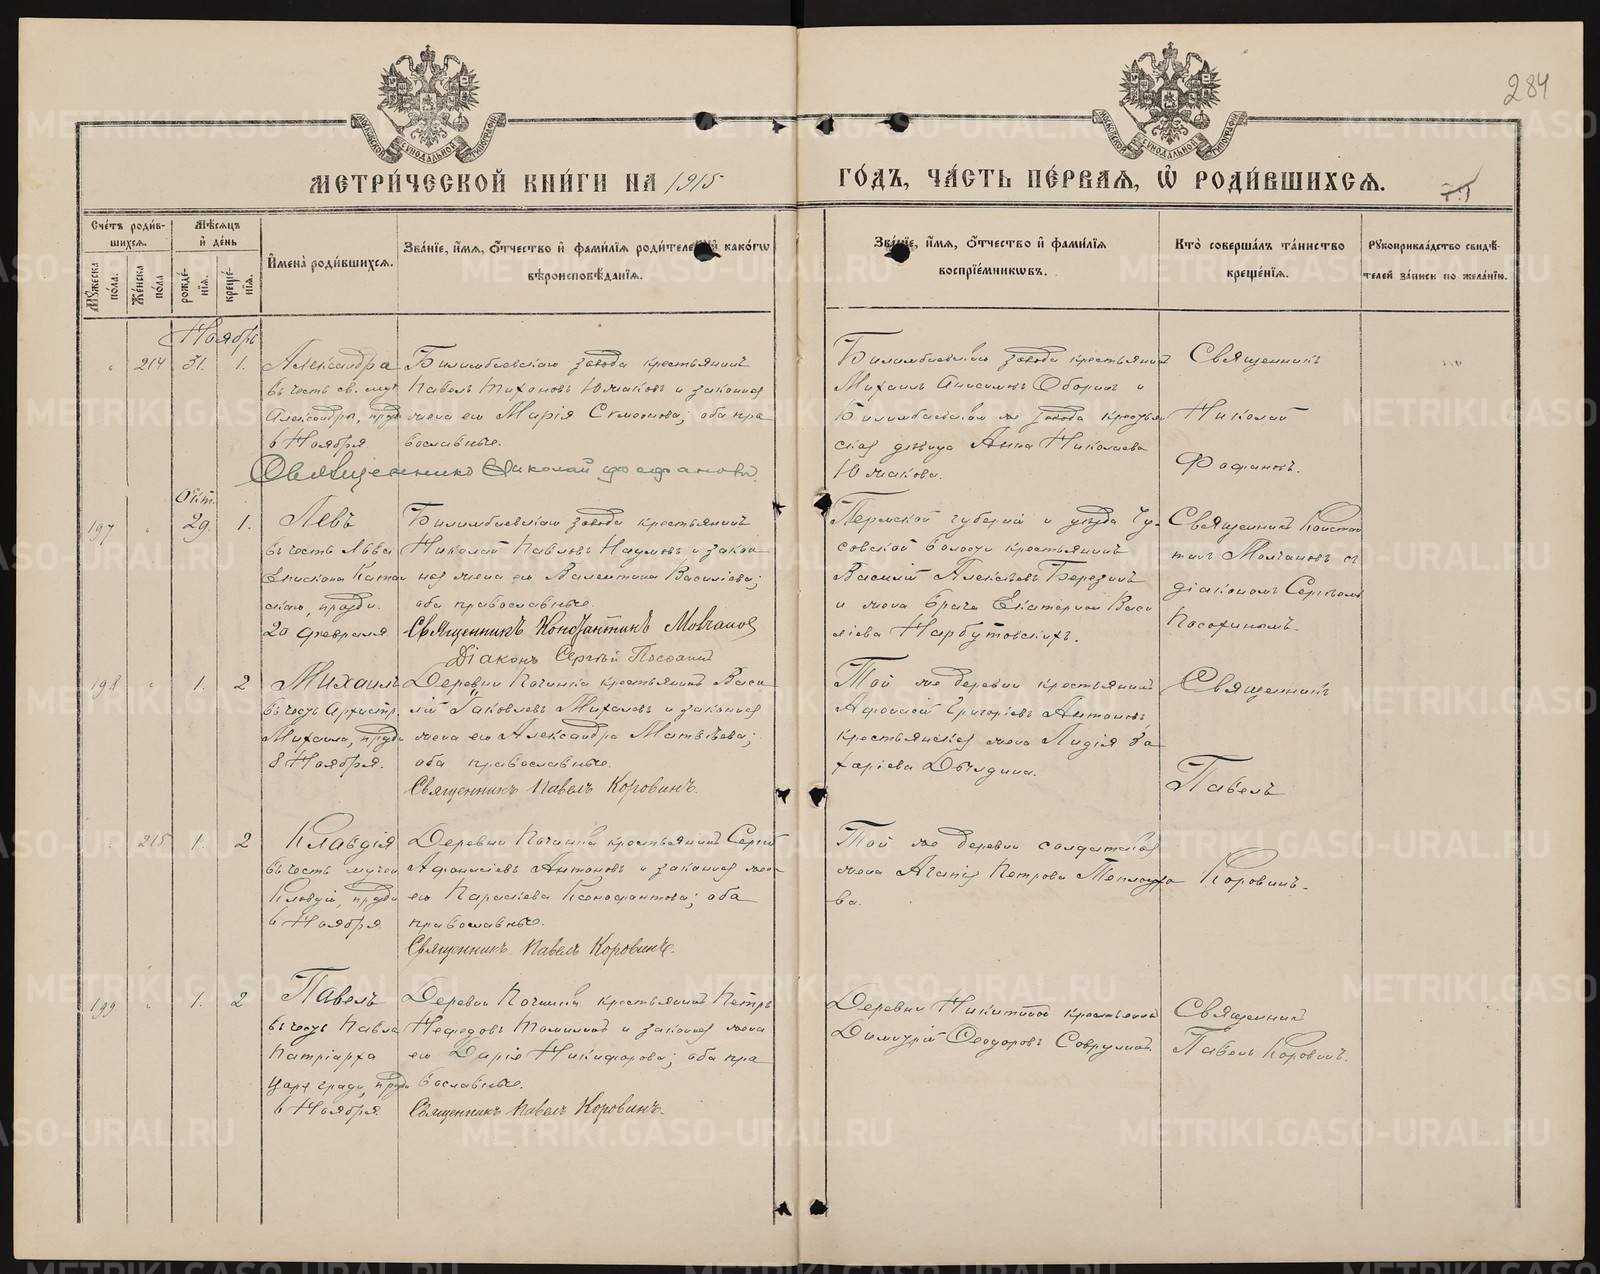 284
МЕТРИ́ЧЕСКОЙ КНИ́ГИ НА 1915
ГО́ДЪ, ЧА́СТЬ ПЕ́РВАЯ, Ѡ҆ РОДИ́ВШИХСЯ.
Сче́тъ роди́в-
шихся.
Мѣ́сяцъ
и҆ де́нь
Му́жеска
по́ла.
Же́нска
по́ла
рожде́-
нїя.
креще́-
нїя.
И҆мена̀ роди́вшихся.
Зва́нїе, и҆́мя, ѻ҆́тчество и҆ фами́лїя роди́телей, и҆ како́гѡ
вѣроисповѣ́данїя.
Зва́нїе, и҆́мя, ѻ҆́тчество и҆ фами́лїя
воспрїе́мникѡвъ.
Кто̀ соверша́лъ та́инство
креще́нїя.
Рукоприкла́дство свидѣ́-
телей за́писи по жела́нїю.
Ноябрь
214 31. 1.
Александра
въ честь св. муч.
Александры, празд.
6 Ноября
Билимбаевскаго завода крестьянинъ
Павелъ Тихоновъ Юмаковъ и законная
жена его Марія Семенова; оба пра
вославные.
Священникъ Николай Фофановъ
Билимбаевскаго завода крестьянинъ
Михаилъ Анисимовъ Оборинъ и
Билимбаевскаго же завода крестьян
ская дѣвица Анна Николаева
Юмакова.
Священникъ
Николай
Фофановъ.
Окт.
197 29. 1.
Левъ
въ честь Льва
Епископа Катан
скаго, празд.
20 Февраля
Билимбаевскаго завода крестьянинъ
Николай Павловъ Наумовъ и закон
ная жена его Валентина Василіева;
оба православные.
Священникъ Константинъ Молчановъ
Діаконъ Сергѣй Посохинъ
Пермской губерніи и уѣзда Чу-
совской волости крестьянинъ
Василій Алексѣевъ Березинъ
и жена врача Екатерина Васи
ліева Нарбутовскихъ.
Священникъ Констан
тинъ Молчановъ съ
діакономъ Сергѣемъ
Посохинымъ.
198 1. 2
Михаилъ
въ честь Архистр.
Михаила, празд.
8 Ноября.
Деревни Починка крестьянинъ Васи
лій Іаковлевъ Михалевъ и законная
жена его Александра Матвѣева;
оба православные.
Священникъ Павелъ Коровинъ.
Той же деревни крестьянинъ
Афонасій Григоріевъ Антоновъ,
крестьянская жена Лидія За
харіева Дылдина.
Священникъ
Павелъ
215 1. 2
Клавдія
въ честь мучен.
Клавдіи, празд.
6 Ноября
Деревни Починка крестьянинъ Сергій
Афонасіевъ Антоновъ и законная жена
его Параскева Ксенофонтова; оба
православные.
Священникъ Павелъ Коровинъ.
Той же деревни солдатская
жена Агапія Петрова
ва.
Коровинъ.
199 1. 2
Павелъ
въ честь Павла
Патріарха
Царя града, празд.
6 Ноября
Деревни Починка крестьянинъ Петръ
Нефедовъ Томиловъ и законная жена
его Дарія Никифорова; оба пра
вославные.
Священникъ Павелъ Коровинъ.
Деревни Никитиной крестьянинъ
Димитрій Ѳеодоровъ
Священникъ
Павелъ Коровинъ.
METRIKI.GASO-URAL.RU